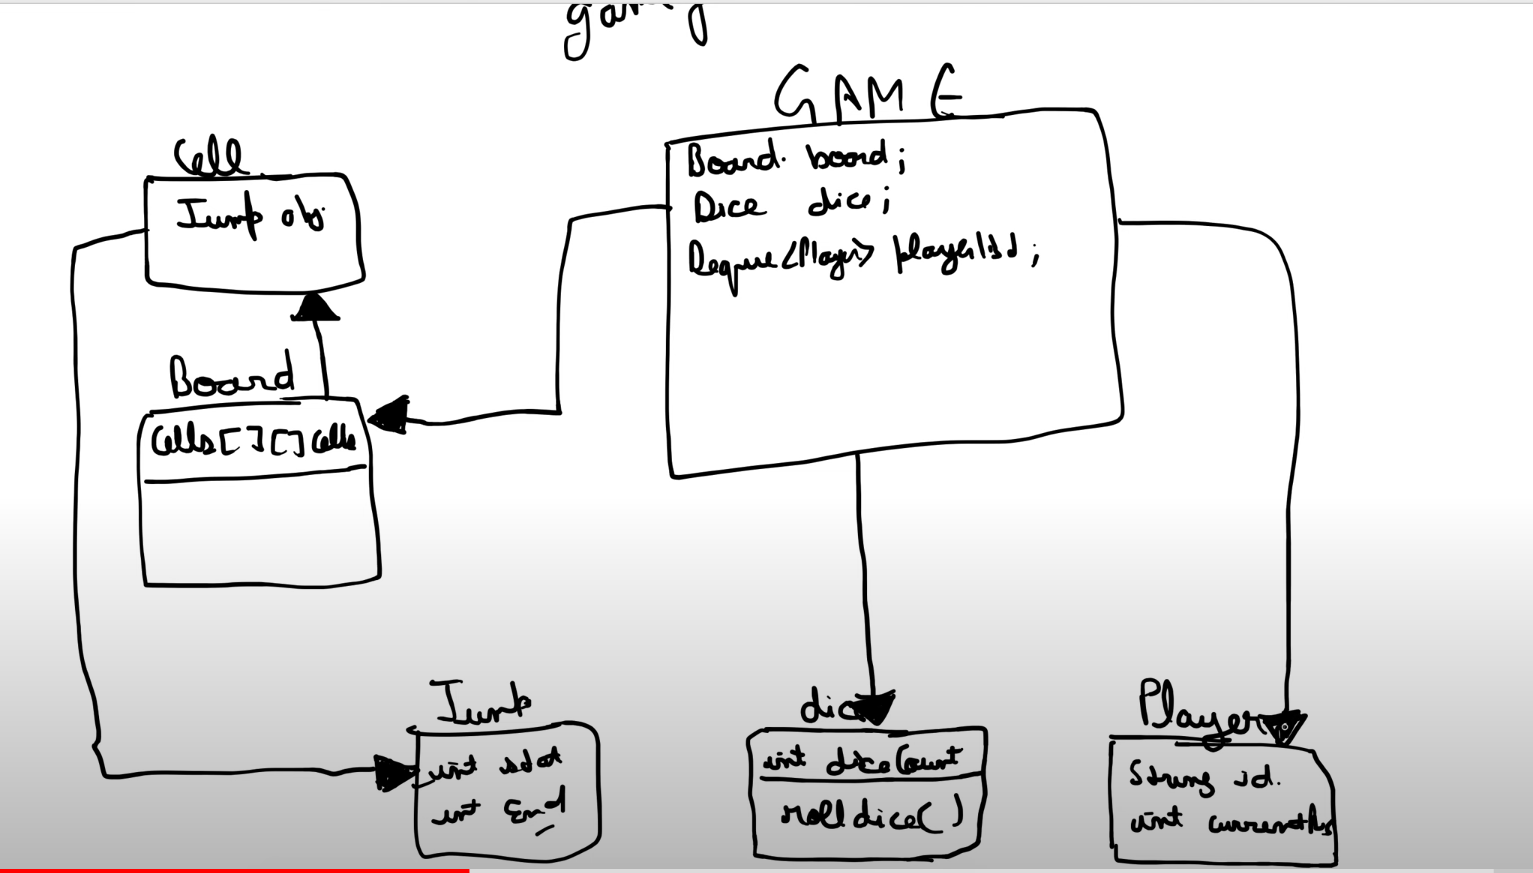 GAME
Board board;
Dice dice;
Deque<Player> playerlist;
Cell
Jump obj
Board
Cells[][] cells
Jump
int start
int End
dice
int diceCount
rolldice()
Player
String id.
int currentPos